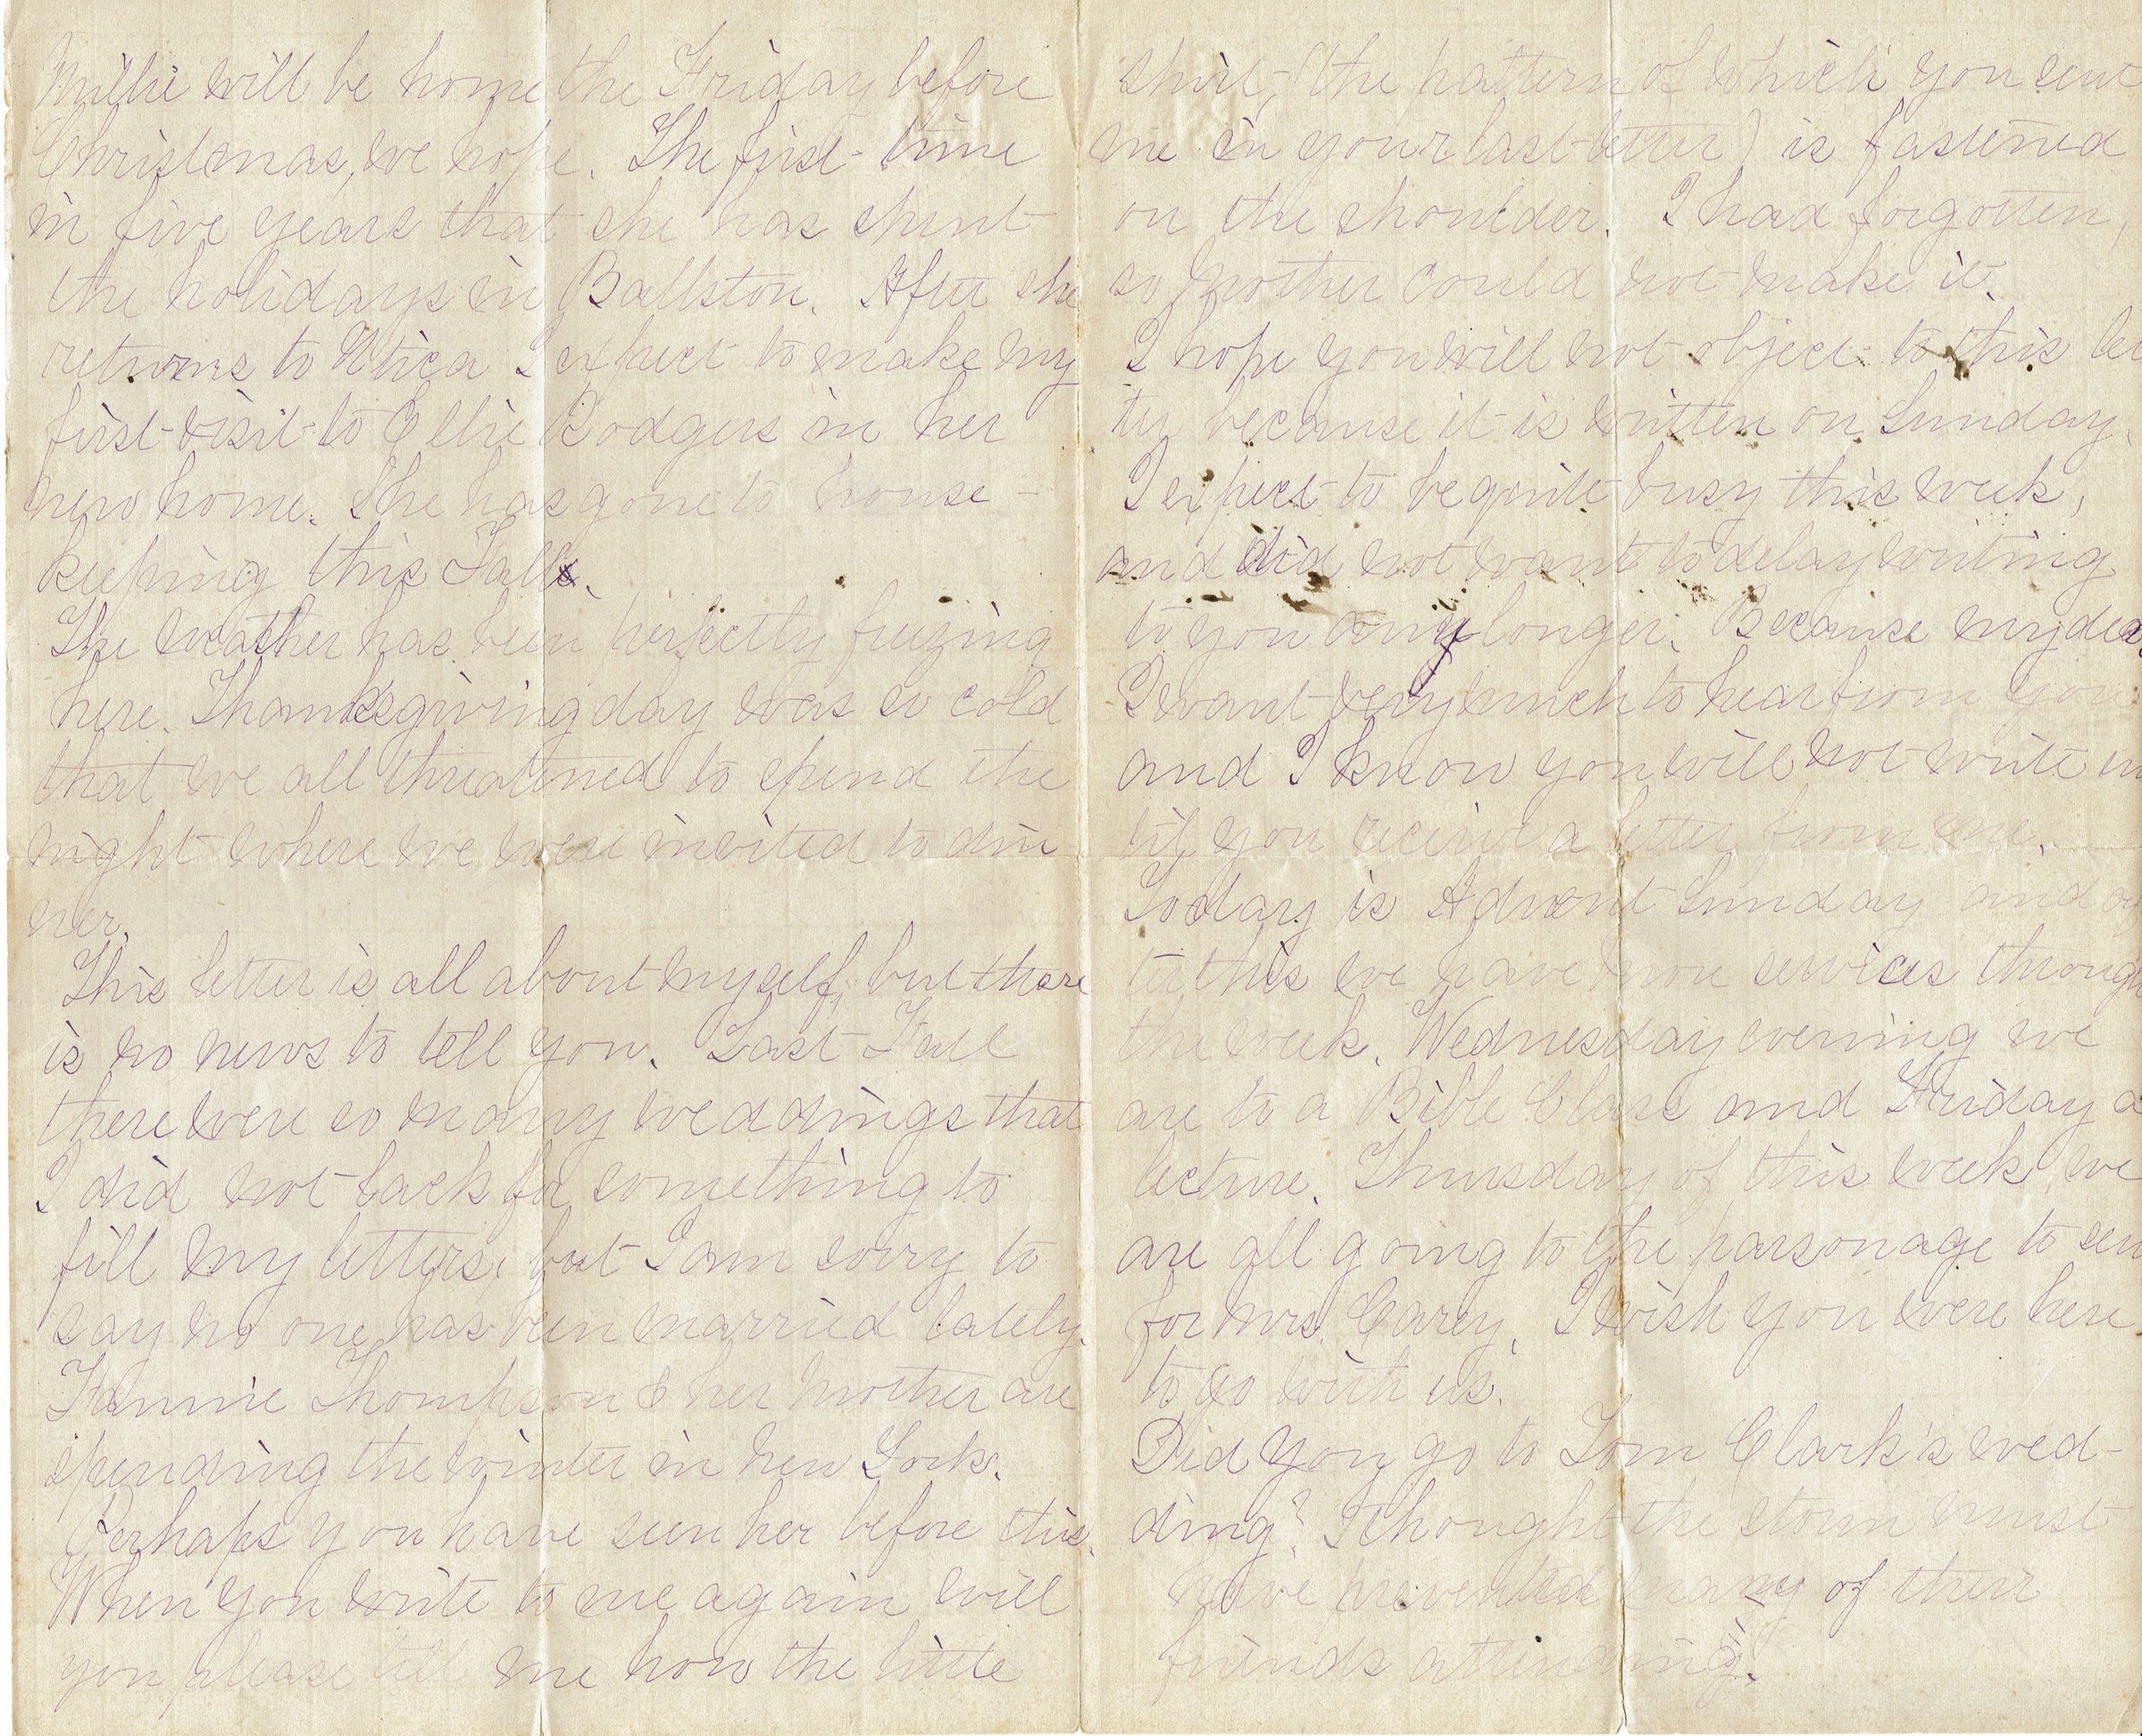 Millie will be home the Friday before
Christmas, we hope. The first time
in five years that she has spent
the holidays in Ballston. After she
returns to Utica I expect to make my
first visit to Ellie Rodgers in her
new home. She has gone to house-
keeping this Fall.
The weather has been perfectly freezing
here. Thanksgiving day was so cold
that we all threatened to spend the
night where we were invited to din
ner.
This letter is all about myself, but there
is no news to tell you. Last Fall
there were so many weddings that
I did not lack for something to
fill my letters, but I am sorry to
say no one has been married lately.
Fannie Thompson & her mother are
spending the winter in New York.
Perhaps you have seen her before this.
When you write to me again will
you please tell me how the little
shirt, (the pattern of which you sent
me in your last letter) is fastened
on the shoulder. I had forgotten,
so Mother could not make it.
I hope you will not object to this let
ter because it is written on Sunday.
I expect to be quite busy this week,
and did not want to delay writing
to you any longer. Because my dear
I want very much to hear from you
and I know you will not write un
til you receive a letter from me.
Today is Advent Sunday and af
ter this we have more services through
the week. Wednesday evening we
are to a Bible Class and Friday a
lecture. Thursday of this week, we
are all going to the parsonage to sew
for Mrs. Carey. I wish you were here
to go with us.
Did you go to Tom Clark's wed-
ding? I thought the storm must
have prevented many of their
friends attending.